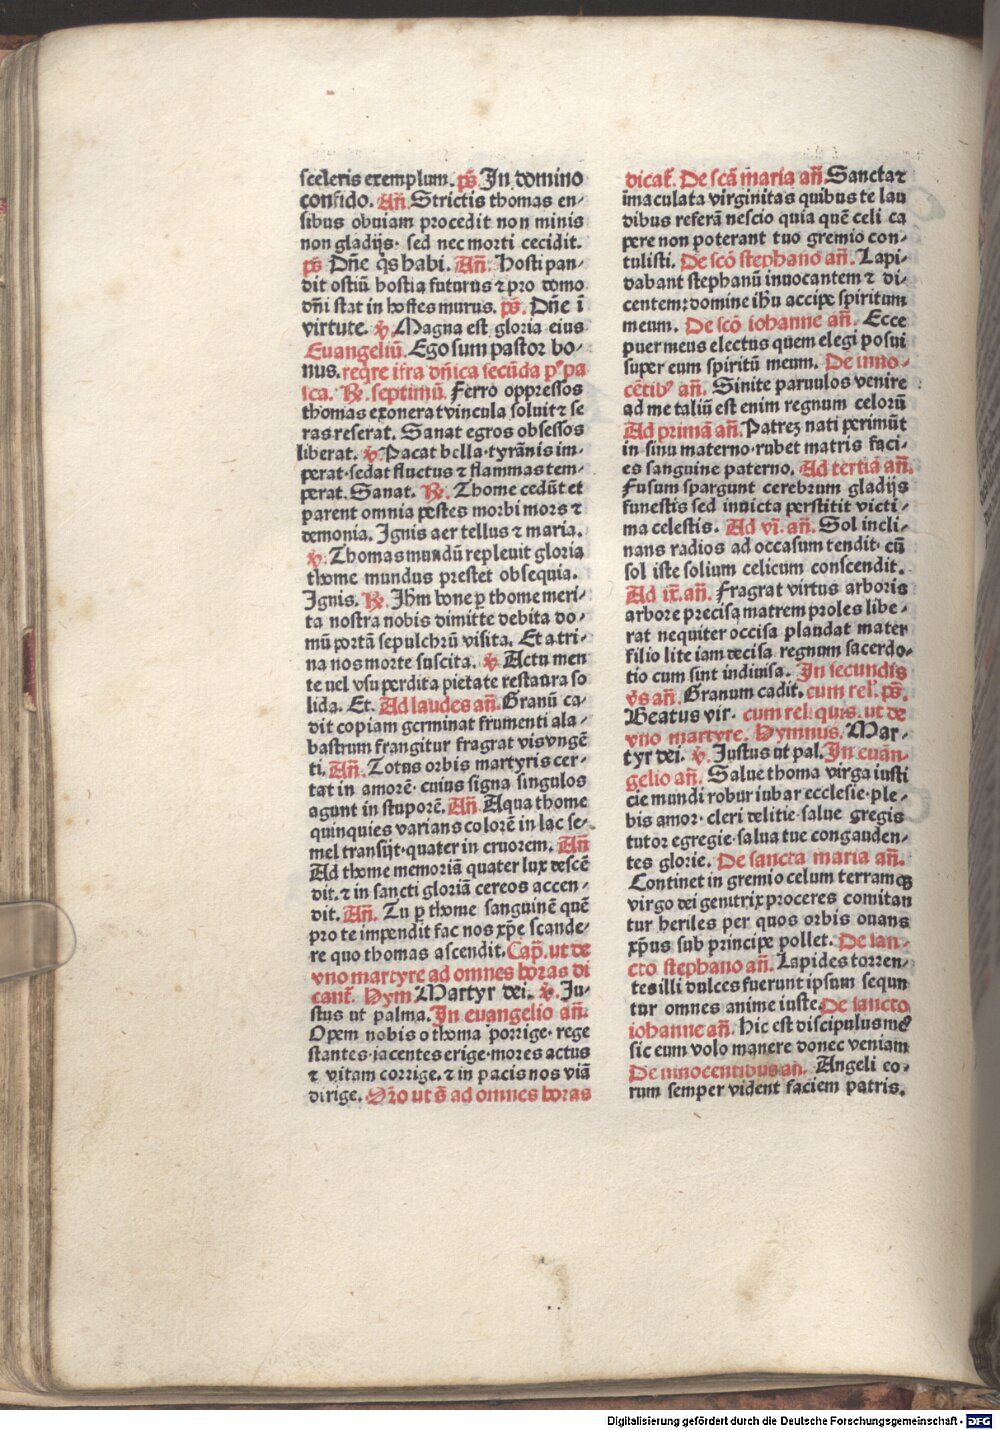 sceleris exemplum. p̄s Jn domino
confido. An̄. Strictis thomas en-
sibus obuiam procedit non minis
non gladijs· sed nec morti cecidit.
p̄s Dn̄e q̄s habi. An̄. Hosti pan-
dit ostiū hostia futurus ⁊ pro domo
dn̄i stat in hostes murus. p̄s. Dn̄e ī
virtute. ℣ Magna est gloria eius
Euangeliū. Ego sum pastor bo-
nus. reqre ifra dn̄ica secūda p⁹ pa
sca. ℟. septimū. Ferro oppressos
thomas exonerat vincula soluit ⁊ se
ras reserat. Sanat egros obsessos
liberat. ℣ Pacat bella· tyrānis im-
perat· sedat fluctus ⁊ flammas tem-
perat. Sanat. ℟. Thome cedūt et
parent omnia pestes morbi mors ⁊
demonia. Jgnis aer tellus ⁊ maria.
℣. Thomas mundū repleuit gloria
thome mundus prestet obsequia.
Jgnis. ℟. Jhm̄ bone ꝑ thome meri-
ta nostra nobis dimitte debita do-
mū portā sepulchrū visita. Et a tri-
na nos morte suscita. ℣ Actu men
te uel vsu perdita pietate restaura so
lida. Et. Ad laudes an̄. Granū ca-
dit copiam germinat frumenti ala-
bastrum frangitur fragrat vis vngē
ti. An̄. Totus orbis martyris cer-
tat in amorē· cuius signa singulos
agunt in stuporē. An̄ Aqua thome
quinquies varians colorē in lac se-
mel transijt· quater in cruorem. An̄
Ad thome memoriā quater lux descē
dit. ⁊ in sancti gloriā cereos accen-
dit. An̄. Tu ꝑ thome sanguinē quē
pro te impendit fac nos xp̄e scande-
re quo thomas ascendit. Cap̄. ut de
vno martyre ad omnes horas di
cant̄. Hym Martyr dei. ℣. Ju-
stus ut palma. Jn euangelio an̄.
Opem nobis o thoma porrige· rege
stantes· iacentes erige· mores actus
⁊ vitam corrige. ⁊ in pacis nos viā
dirige. Or̄o ut s̄ ad omnes horas
dicat̄. De scā maria an̄ Sancta ⁊
īmaculata virginitas quibus te lau
dibus referā nescio quia quē celi ca
pere non poterant tuo gremio con-
tulisti. De scō stephano an̄. Lapi-
dabant stephanū inuocantem ⁊ di-
centem: domine ihu accipe spiritum
meum. De scō iohanne an̄. Ecce
puer meus electus quem elegi posui
super eum spiritū meum. De inno-
cētib⁹ an̄. Sinite paruulos venire
ad me taliū est enim regnum celorū
Ad primā an̄. Patreꝫ nati perimūt
in sinu materno· rubet matris faci-
es sanguine paterno. Ad tertiā an̄.
Fusum spargunt cerebrum gladijs
funestis sed inuicta perstitit victi-
ma celestis. Ad vi. an̄. Sol incli-
nans radios ad occasum tendit· cū
sol iste solium celicum conscendit.
Ad ix. an̄. Fragrat virtus arboris
arbore precisa matrem proles libe-
rat nequiter occisa plaudat mater
filio lite iam decisa regnum sacerdo-
tio cum sint indiuisa. Jn secundis
v̄s an̄. Granum cadit. cum rel̄. p̄s.
Beatus vir. cum rel. quis. ut de
vno martyre. Hymnus. Mar-
tyr dei. ℣. Justus ut pal. Jn euan-
gelio an̄. Salue thoma virga iusti
cie mundi robur iubar ecclesie· ple-
bis amor· cleri delitie· salue gregis
tutor egregie· salua tue congauden-
tes glorie. De sancta maria an̄.
Continet in gremio celum terramqꝫ
virgo dei genitrix proceres comitan
tur heriles per quos orbis ouans
xp̄us sub principe pollet. De san-
cto stephano an̄. Lapides torren-
tes illi dulces fuerunt ipsum sequn
tur omnes anime iuste. De sancto
iohanne an̄. Hic est discipulus me⁹
sic eum volo manere donec veniam
De innocentibus an̄. Angeli eo-
rum semper vident faciem patris.
Digitalisierung gefördert durch die Deutsche Forschungsgemeinschaft - DFG